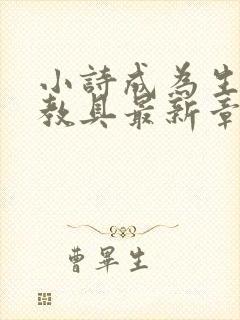 小詩成為生
教具最新章
曹畢生